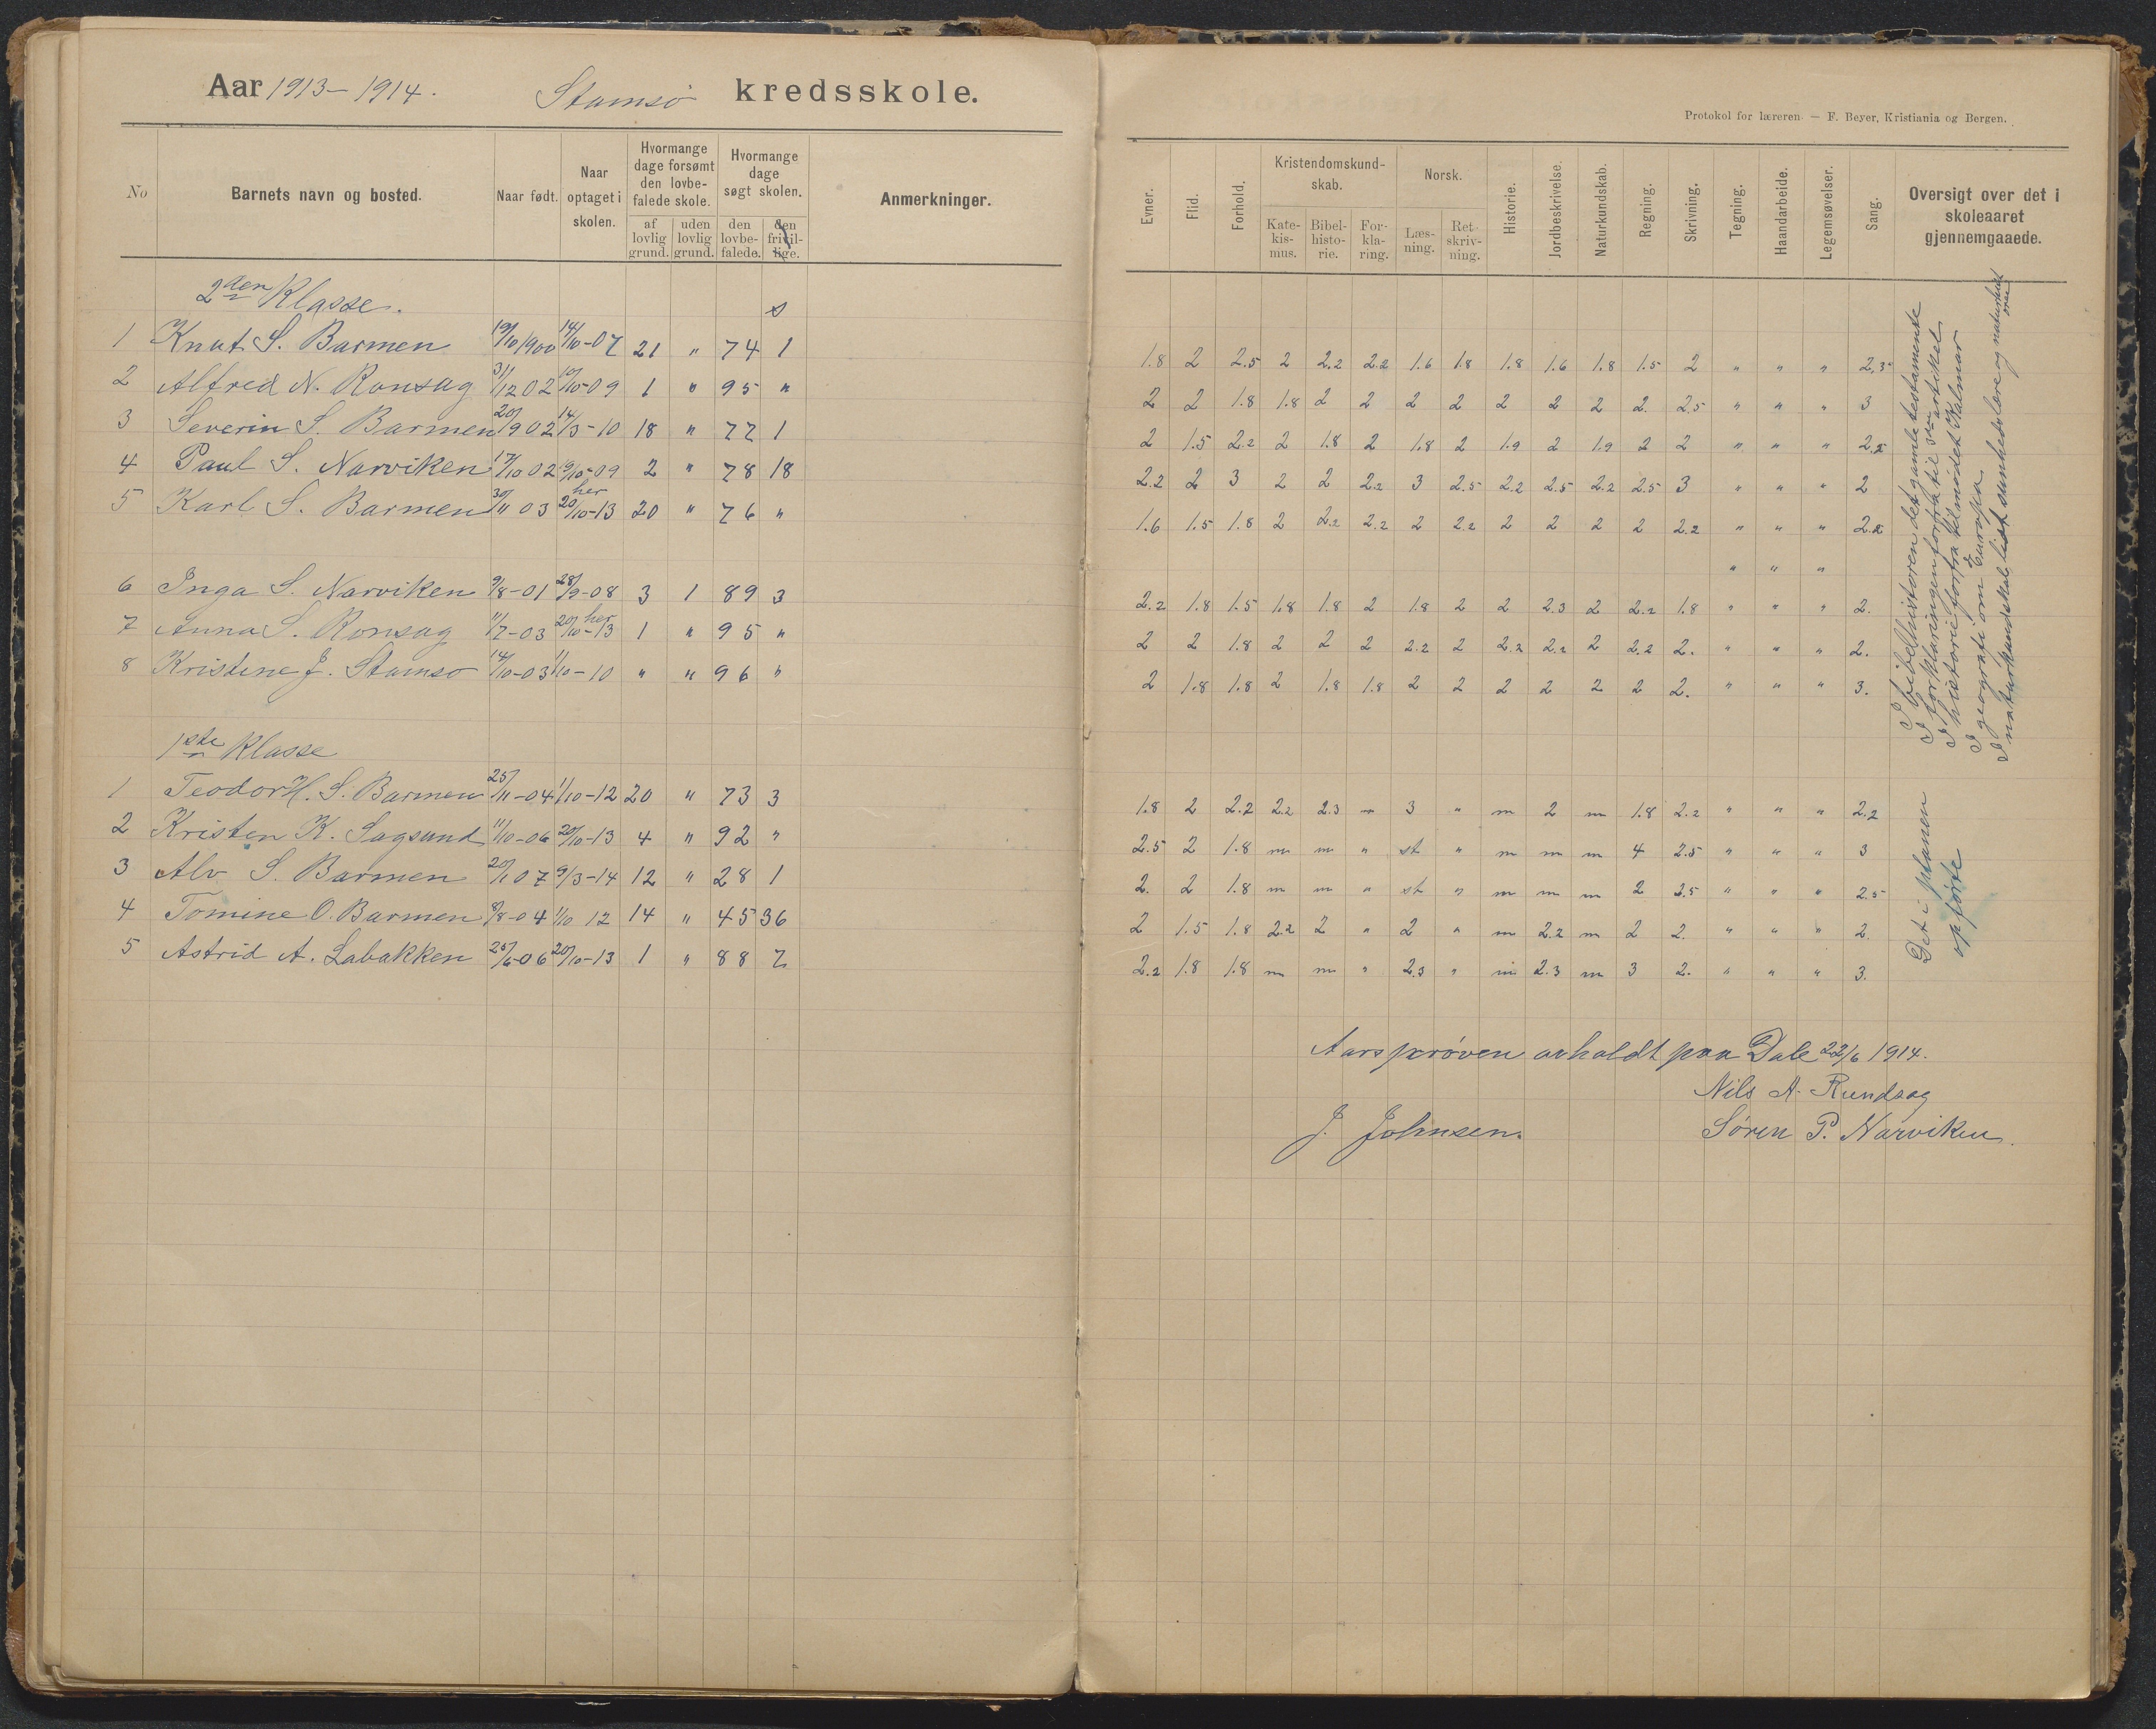 Aar 1913-1914. Stamsø kredsskole.
No
Barnets navn og bosted.
Naar født.
Naar optaget i skolen.
Hvormange dage forsømt den lovbefalede skole.
af lovlig grund.
uden lovlig grund.
Hvormange dage søgt skolen.
den lovbefalede.
den frivillige.
Anmerkninger.
2den Klasse. s
1 Knut S. Barmen 19/10 1900 14/10-07 21 " 74 1
2 Alfred N. Ronsag 31/12 02 10-09 1 " 95 "
3 Severin S. Barmen 20/9 02 14/3-10 18 " 77 1
4 Paul S. Narviken 17/10 02 19/10-09 2 " 78 18
5 Karl S. Barmen 30/11 03 her 20/10-13 20 " 76 "
6 Inga S. Narviken 9/8-01 28/9-08 3 1 89 3
7 Anna S. Ronsag 11/7-03 her 20/10-13 1 " 95 "
8 Kristine J. Stamsø 14/10-03 1/10-10 " " 96 "
1ste Klasse
1 Teodor H. S. Barmen 25/11-04 1/10-12 20 " 73 3
2 Kristen K. Sagsund 11/10-06 20/10-13 4 " 92 "
3 Alv S. Barmen 20/1 07 9/3-14 12 " 28 1
4 Tomine O. Barmen 8/8-04 1/10 12 14 " 45 36
5 Astrid A. Labakken 25/6-06 20/10-13 1 " 88 7
Protokol for læreren. — F. Beyer, Kristiania og Bergen.
Evner.
Flid.
Forhold.
Kristendomskundskab.
Katekismus.
Bibelhistorie.
Forklaring.
Norsk.
Læsning.
Retskrivning.
Historie.
Jordbeskrivelse.
Naturkundskab.
Regning.
Skrivning.
Tegning.
Haandarbeide.
Legemsøvelser.
Sang.
Oversigt over det i skoleaaret gjennemgaaede.
1.8 2 2.5 2 2.2 2.2 1.6 1.8 1.8 1.6 1.8 1.5 2 " " " 2.3
2 2 1.8 1.8 2 2 2 2 2 2 2 2. 2.5 " " " 3
2 1.5 2.2 2 1.8 2 1.8 2 1.9 2 1.9 2 2 " " " 2.2
2.2 2 3 2 2 2.2 3 2.5 2.2 2.5 2.2 2.5 3 " " " 2
1.6 1.5 1.8 2 2.2 2.2 2 2.2 2 2 2 2 2.2 " " " 2.2
" " "
2.2 1.8 1.5 1.8 1.8 2 1.8 2 2 2.3 2 2.2 1.8 " " " 2.
2 2 1.8 2 2 2 2.2 2 2.2 2.2 2 2.2 2. " " " 2.
2 1.8 1.8 2 1.8 1.8 2 2 2 2 2 2 2. " " " 3.
1.8 2 2.2 2.2 2.3 " 3 " m 2 m 1.8 2.2 " " " 2.2
2.5 2 1.8 m m " st " m m m 4 2.5 " " " 3
2. 2 1.8 m m " st " m m m 2 2.5 " " " 2.5
2 1.5 1.8 2.2 2 " 2 " m 2.2 m 2 2. " " " 2.
2.2 1.8 1.8 m m " 2.3 " m 2.3 m 3 2. " " " 3.
I bibelhistorien det gamle testamente
I forklaringen forfra til artikel
I historie forfra til mødet Kalmar
I geografi om Europa
I naturkundskab lidt sunhetslære og naturkund
Det i planen
opførte
Aarsprøven avholdt paa Dale 22/6 1914.
Nils A. Rundsag
J. Johnsen. Søren P. Narviken.